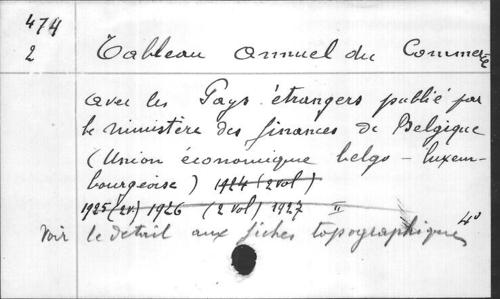 474
2
Tableau Annuel du Commerce
avec les Pays étrangers publié par
le ministère des finances de Belgique
(Union économique belgo-luxem-
bourgeoise) 1924 (2 vol)
1925 (2v) 1926 (2 vol) 1927 II
Voir le detail aux fiches topographiques 4°